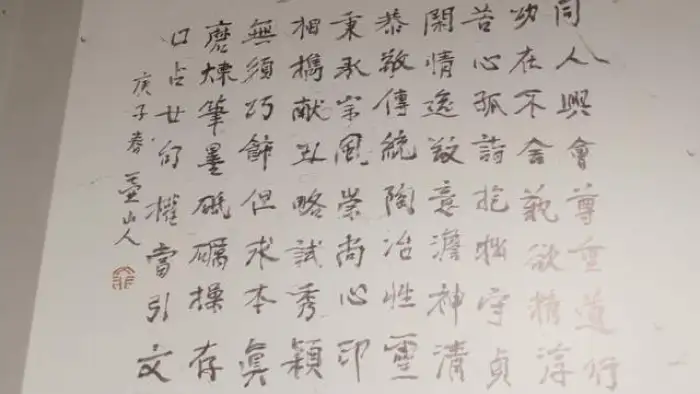 同人興會尊重道行
功在不舍藝欲精淳
苦心孤詣抱拙守貞
閑情逸致意澹神清
恭敬傳統陶冶性靈
秉承宗風崇尚心印
相攜献丑略試秀穎
無須巧飾但求本眞
磨煉筆墨砥礪操存
口占廿句權當引文
庚子春 山人